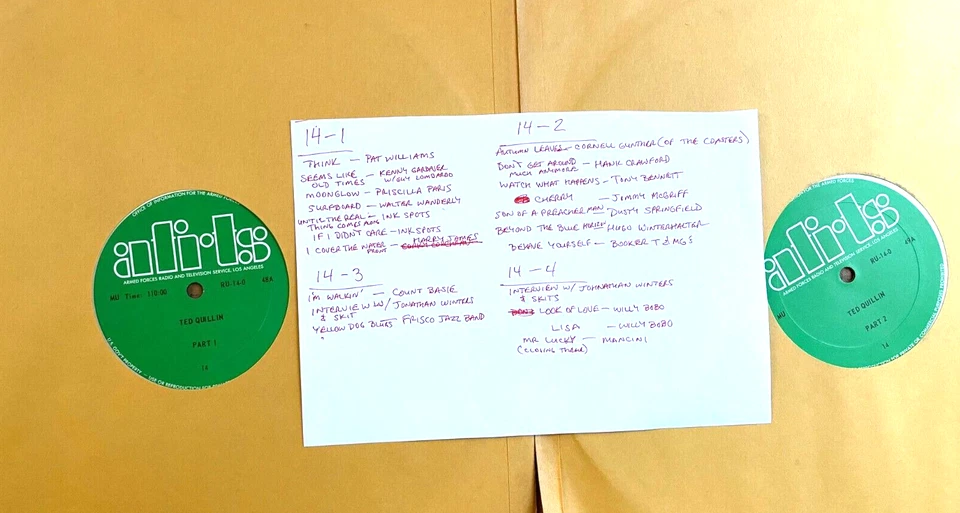 OFFICE OF INFORMATION FOR THE ARMED
afrts
ARMED FORCES RADIO AND TELEVISION SERVICE, LOS ANGELES
MU Time: 110:00
RU-14-0 48A
TED QUILLIN
PART 1
14
U.S. GOV'T PROPERTY — USE OR REPRODUCTION FOR
14-1
THINK — PAT WILLIAMS
SEEMS LIKE OLD TIMES — KENNY GARDNER W/GUY LOMBARDO
MOONGLOW — PRISCILLA PARIS
SURFBOARD — WALTER WANDERLY
UNTIL THE REAL THING COMES ALONG — INK SPOTS
IF I DIDN'T CARE — INKSPOTS
I COVER THE WATER FRONT — HARRY JAMES
14-2
AUTUMN LEAVES — CORNELL GUNTHER (OF THE COASTERS)
DON'T GET AROUND MUCH ANYMORE — HANK CRAWFORD
WATCH WHAT HAPPENS — TONY BENNETT
CHERRY — JIMMY McGRIFF
SON OF A PREACHERMAN — DUSTY SPRINGFIELD
BEYOND THE BLUE HORIZ — HUGO WINTERHALTER
BEHAVE YOURSELF — BOOKER T & MG'S
14-3
I'M WALKIN' — COUNT BASIE
INTERVIEW W/ JONATHAN WINTERS & SKIT
YELLOW DOG BLUES — FRISCO JAZZ BAND
14-4
INTERVIEW W/ JOHNATHAN WINTERS & SKITS
LOOK OF LOVE — WILLY BOBO
LISA — WILLY BOBO
MR LUCKY — MANCINI
(CLOSING THEME)
afrts
ARMED FORCES RADIO AND TELEVISION SERVICE, LOS ANGELES
MU
RU-14-0 49A
TED QUILLIN
PART 2
14